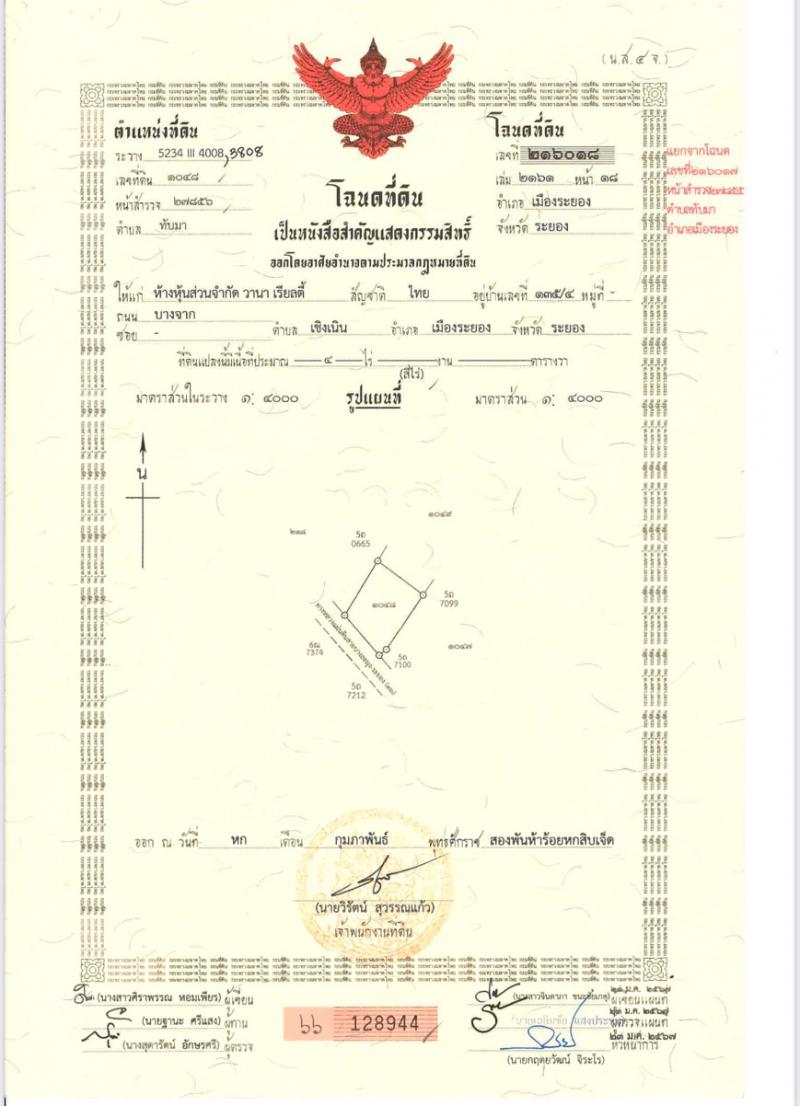 (น.ส.๔ จ.)
ตำแหน่งที่ดิน
ระวาง 5234 III 4008,3808
เลขที่ดิน ๑๐๔๘
หน้าสำรวจ ๒๗๘๕๖
ตำบล ทับมา
โฉนดที่ดิน
เลขที่ ๒๑๖๐๑๘
เล่ม ๒๑๖๑ หน้า ๑๘
อำเภอ เมืองระยอง
จังหวัด ระยอง
แยกจากโฉนด
เลขที่๒๑๖๐๑๗
หน้าสำรวจ๒๗๘๕๕
ตำบลทับมา
อำเภอเมืองระยอง
โฉนดที่ดิน
เป็นหนังสือสำคัญแสดงกรรมสิทธิ์
ออกโดยอาศัยอำนาจตามประมวลกฎหมายที่ดิน
ให้แก่ ห้างหุ้นส่วนจำกัด วานา เรียลตี้ สัญชาติ ไทย อยู่บ้านเลขที่ ๑๓๕/๔ หมู่ที่ -
ถนน บางจาก
ซอย - ตำบล เชิงเนิน อำเภอ เมืองระยอง จังหวัด ระยอง
ที่ดินแปลงนี้มีเนื้อที่ประมาณ ๔ ไร่ งาน ตารางวา
(สี่ไร่)
มาตราส่วนในระวาง ๑: ๔๐๐๐ รูปแผนที่ มาตราส่วน ๑: ๔๐๐๐
น
๑๐๔๙
๒๑๘
5ถ
0665
๑๐๔๘
5ถ
7099
๑๐๔๗
6ณ
7374
5ถ
7100
5ถ
7212
ออก ณ วันที่ หก เดือน กุมภาพันธ์ พุทธศักราช สองพันห้าร้อยหกสิบเจ็ด
(นายวิรัตน์ สุวรรณแก้ว)
เจ้าพนักงานที่ดิน
(นางสาวศิราพรรณ หอมเพียร) ผู้เขียน
(นายฐานะ ศรีแสง) ผู้ทาน
(นางสุดารัตน์ อักษรศรี) ผู้ตรวจ
๖๖ 128944
ผู้เขียนแผนที่
ผู้ตรวจแผนที่
๒๓ ม.ค. ๒๕๖๗
หัวหน้าการ
(นายกฤตยวัฒน์ จิระโร)